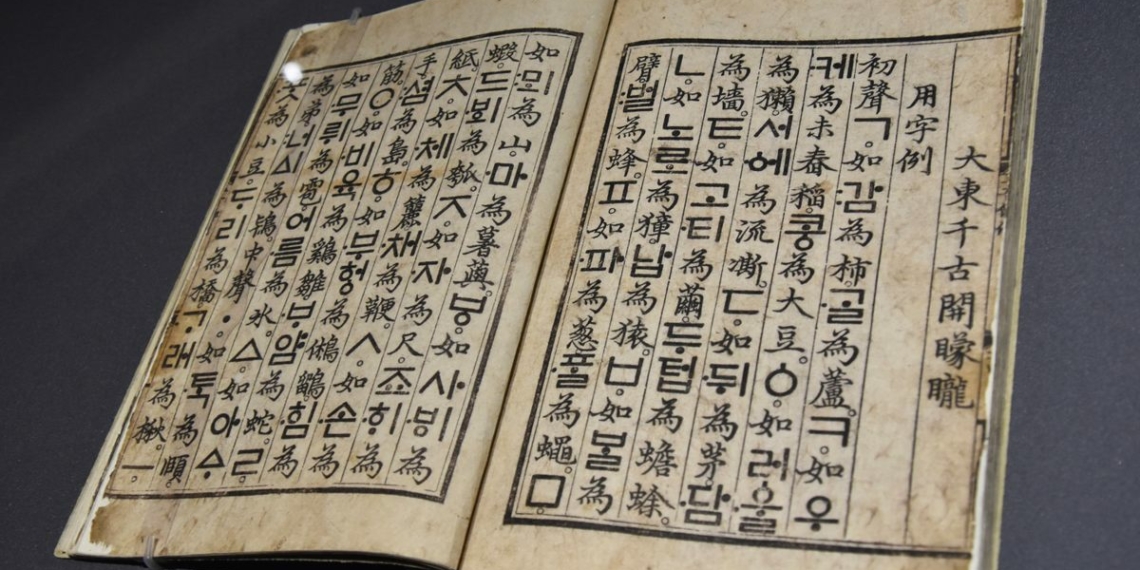 大東千古開矇矓
用字例
初聲ㄱ。如:감為柿。·ᄀᆞᆯ為蘆。ㅋ。如우
·케為未舂稻。코ᇰ為大豆。ㆁ。如러·ᅌᅮᆯ
為獺。서·ᅌᅦ為流凘。ㄷ。如·뒤為茅。·담
為墻。ㅌ。如고·티為繭。두텁為蟾蜍。
ㄴ。如노로為獐。납為猿。ㅂ。如ᄇᆞᆯ為
臂。:벌為蜂。ㅍ。如·파為葱。·ᄑᆞᆯ為蠅。ㅁ。
如:뫼為山。·마為薯藇。ㅸ。如사·ᄫᅵ為
蝦。드·ᄫᅴ為瓠。ㅈ。如·자為尺。죠·ᄒᆡ為
紙。ㅊ。如·체為籭。·채為鞭。ㅅ。如·손為
手。:셤為島。ㅎ。如·부허ᇰ為鵂鶹。·힘為
筋。ㅇ。如·비육為鷄雛。·ᄇᆞ얌為蛇。ㄹ。
如·무뤼為雹。어·름為氷。ㅿ。如아ᅀᆞ
為弟。:너ᅀᅵ為鴇。中聲ㆍ。如·ᄐᆞᆨ為頤。
·ᄑᆞᆺ為小豆。ᄃᆞ리為橋。·ᄀᆞ래為楸。ㅡ。